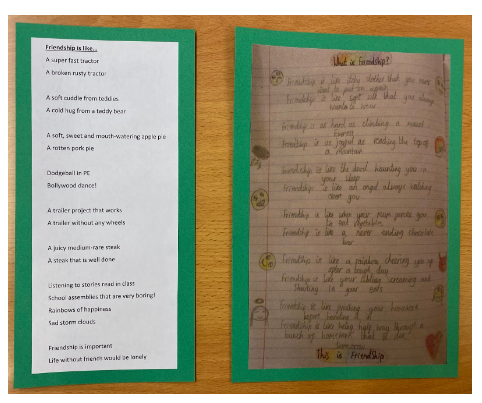 Friendship is like...
A super fast tractor
A broken rusty tractor
A soft cuddle from teddies
A cold hug from a teddy bear
A soft, sweet and mouth-watering apple pie
A rotten pork pie
Dodgeball in PE
Bollywood dance!
A trailer project that works
A trailer without any wheels
A juicy medium-rare steak
A steak that is well done
Listening to stories read in class
School assemblies that are very boring!
Rainbows of happiness
Sad storm clouds
Friendship is important
Life without friends would be lonely
What is Friendship?
Friendship is like itchy clothes that you never
want to put on again
Friendship is like soft silk that you always
Friendship is as hard as climbing a
Friendship is as joyful as reaching the top of
a mountain
Friendship is like the devil haunting you in
your sleep
Friendship is like an angel always watching
over you
Friendship is like when your mum forces you
to eat vegetables
Friendship is like a never ending chocolate
bar
Friendship is like a rainbow cheering you up
after a tough day
Friendship is like your sibling screaming and
shouting in your ears
Friendship is like your homework
before handing it in
Friendship is like being through a
bunch of homework that is due
tomorrow
This is Friendship